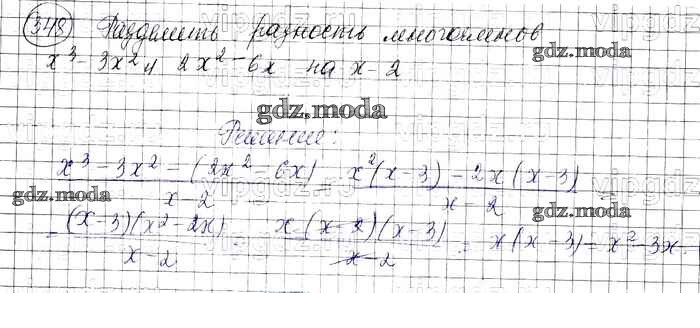 348 Разделить разность многочленов
x³ - 3x² и 2x² - 6x на x - 2
gdz.moda
gdz.moda
Решение:
x³ - 3x² - (2x² - 6x) / x - 2 = x²(x - 3) - 2x(x - 3) / x - 2
gdz.moda
gdz.moda
= (x - 3)(x² - 2x) / x - 2 = x(x - 2)(x - 3) / x - 2 = x(x - 3) = x² - 3x